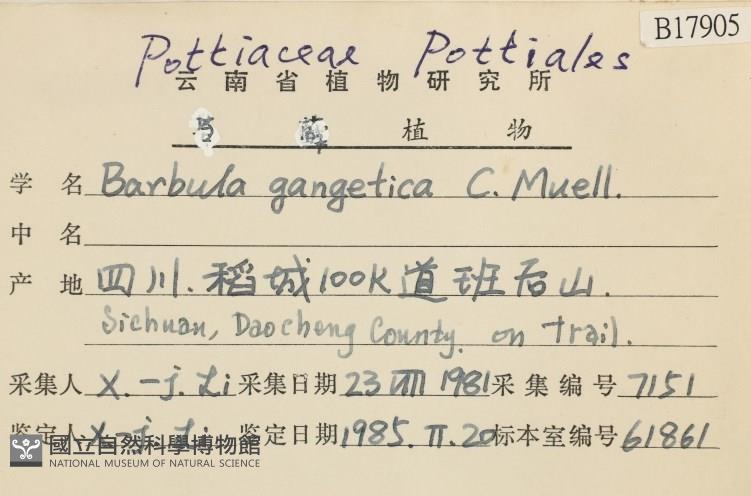 B17905
Pottiaceae Pottiales
云南省植物研究所
苔藓植物
学名 Barbula gangetica C. Muell.
中名
产地 四川.稻城100K道班后山.
Sichuan, Daocheng County. on trail.
采集人 X.-j. Li 采集日期 23 VIII 1981 采集编号 7151
鉴定人 X-j. Li 鉴定日期 1985.II.20 标本室编号 61861
國立自然科學博物館
NATIONAL MUSEUM OF NATURAL SCIENCE